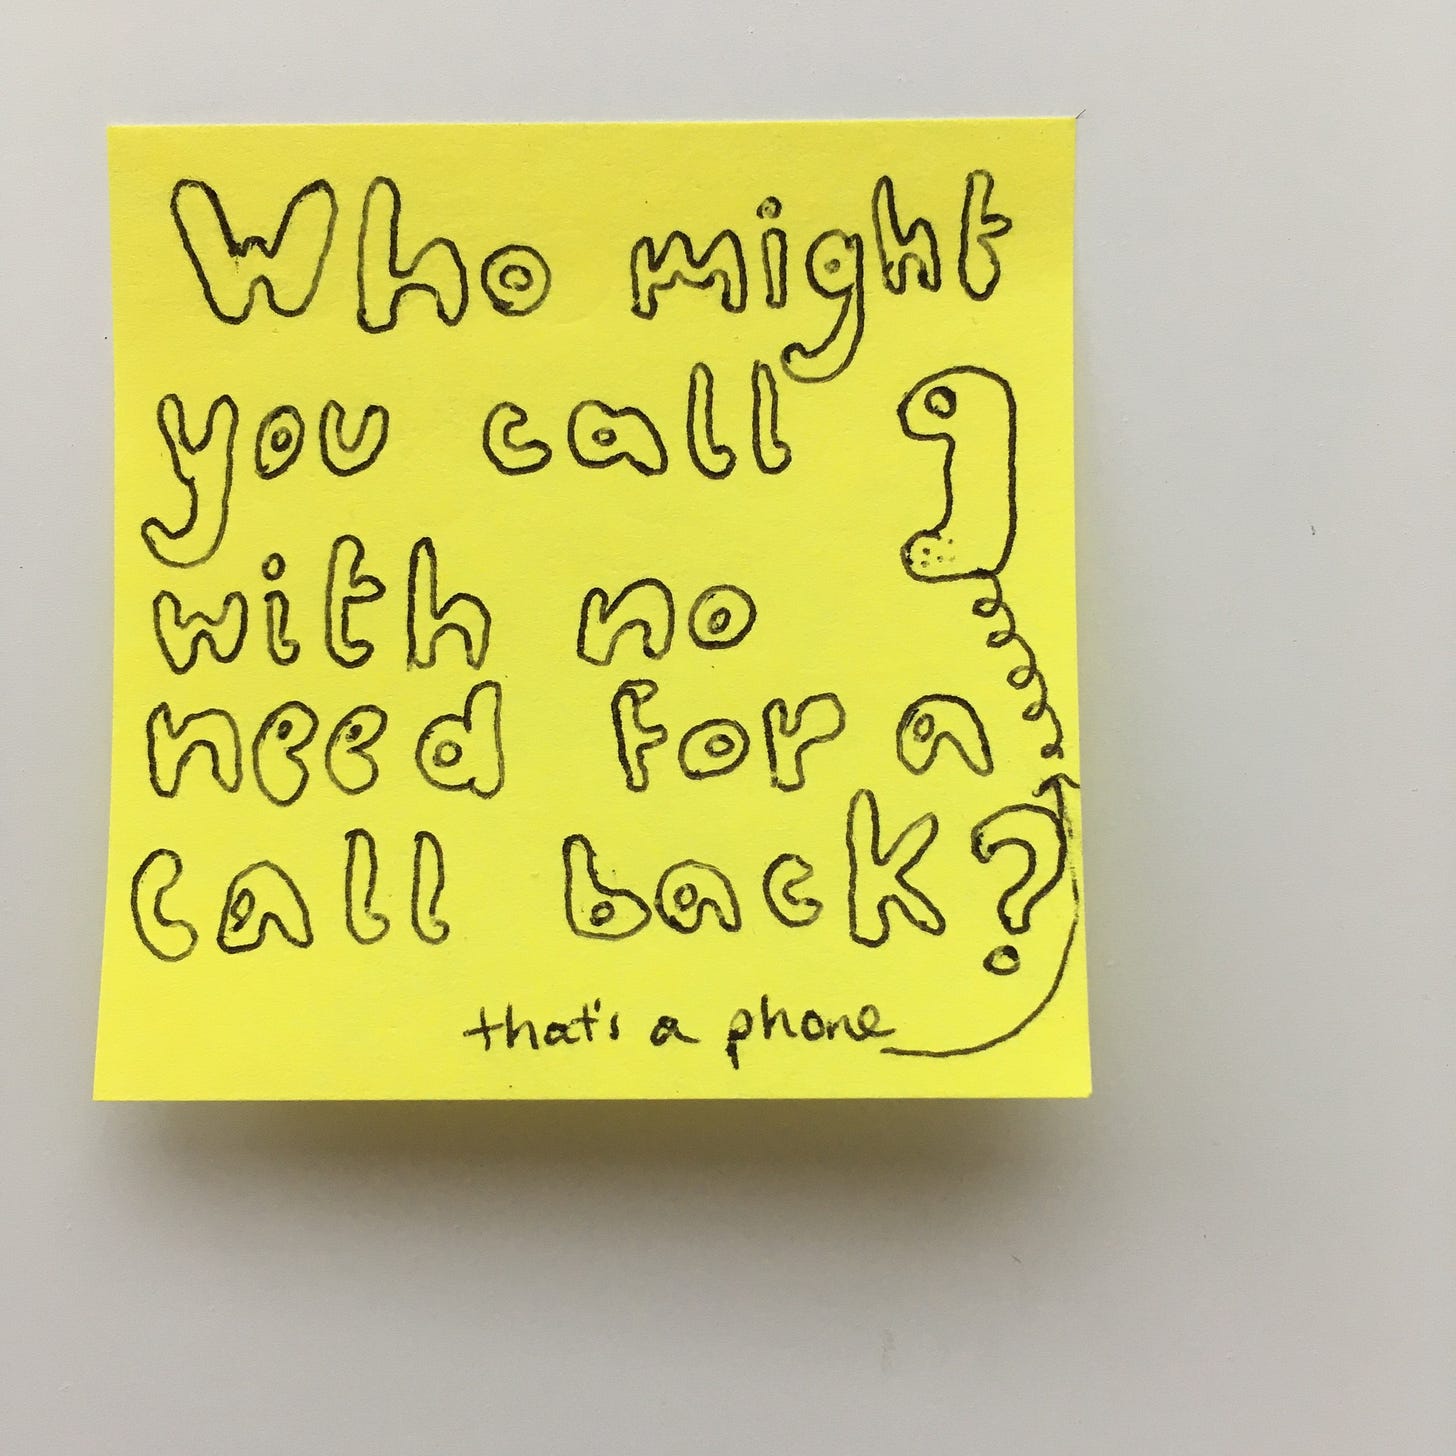 Who might
you call
with no
need for a
call back?
that's a phone